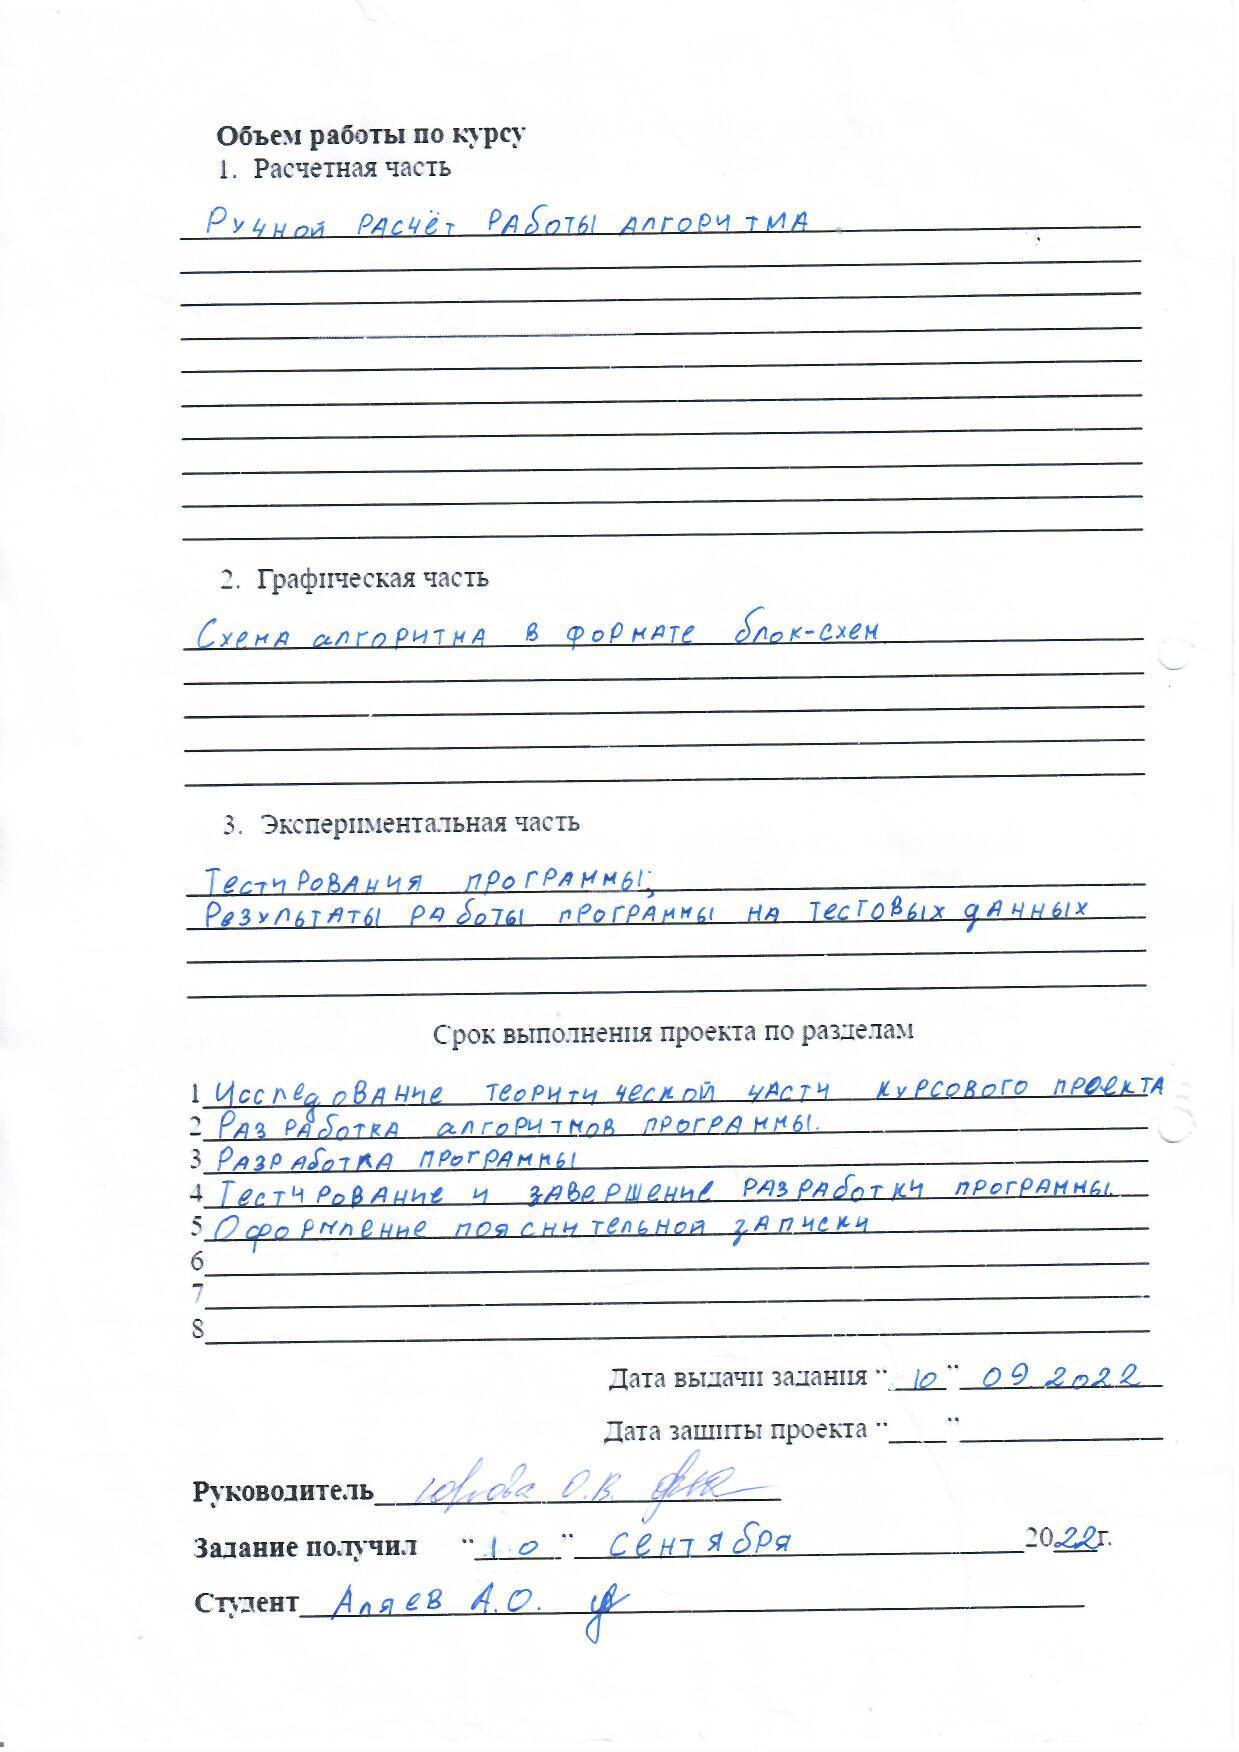 Объем работы по курсу
1. Расчетная часть
Ручной расчёт работы алгоритма
2. Графическая часть
Схема алгоритма в формате блок-схем
3. Экспериментальная часть
Тестирования программы;
Результаты работы программы на тестовых данных
Срок выполнения проекта по разделам
1 Исследование теоритической части курсового проекта
2 Разработка алгоритмов программы.
3 Разработка программы
4 Тестирование и завершение разработки программы.
5 Оформление пояснительной записки
6
7
8
Дата выдачи задания "10" 09 2022
Дата защиты проекта "____"
Руководитель О.В.
Задание получил "10" сентября 2022г.
Студент Аляев А.О.